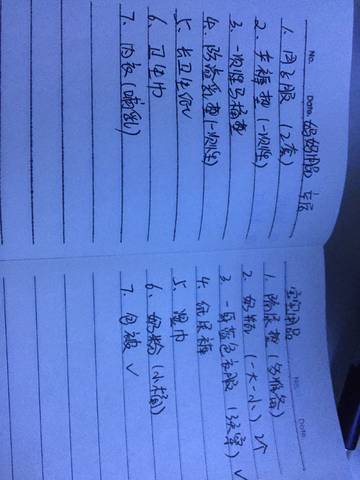 No.
Date.
妈妈用品
1、月子服 (2套)
2、产褥垫 (一次性)
3、一次性马桶垫
4、防溢乳垫(一次性)
5、长卫生纸 √
6、卫生巾
7、内衣 (哺乳)
No.
Date.
宝宝用品
1、隔尿垫 (多准备)
2、奶瓶 (一大一小) 2个
3、一身蓝色衣服 √
4、纸尿裤
5、湿巾
6、奶粉 (小桶)
7、包被 √